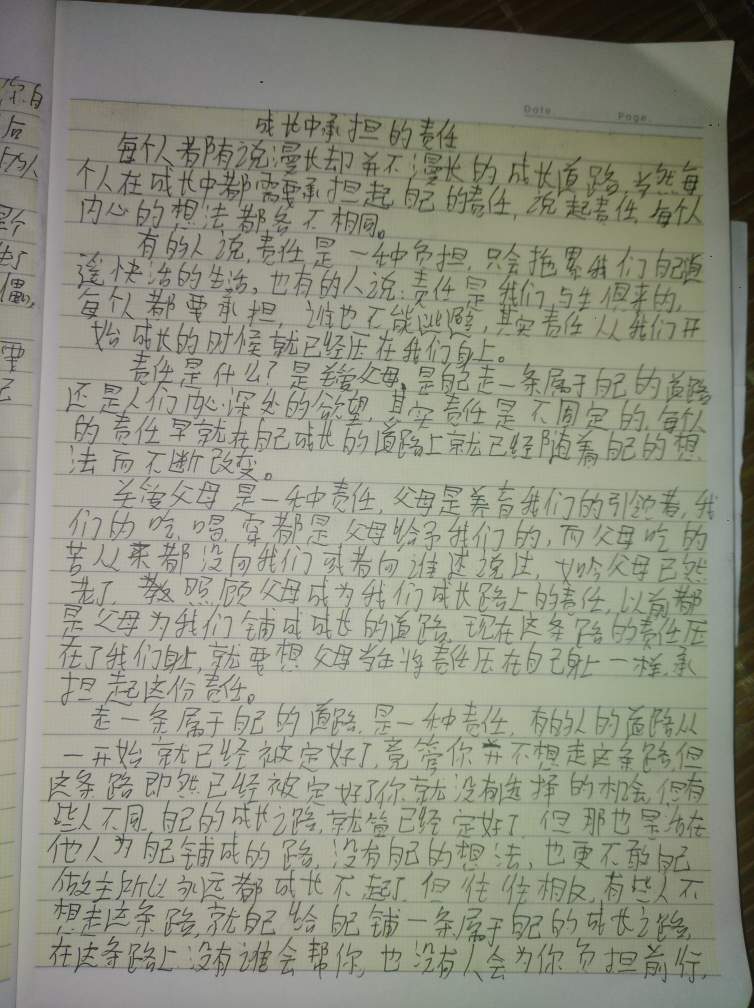 你自
后
Date.
Page.
成长中承担的责任
每个人都有说漫长却并不漫长的成长道路,当然每
个人在成长中都需要承担起自己的责任,说起责任,每个人
内心的想法都各不相同。
有的人说,责任是一种负担,只会拖累我们自己逍
遥快活的生活,也有的人说:责任是我们与生俱来的,
每个人都要承担,谁也不能逃避,其实责任从我们开
始成长的时候就已经压在我们身上。
责任是什么?是关爱父母,是自己走一条属于自己的道路
还是人们内心深处的欲望,其实责任是不固定的,每个人
的责任早就在自己成长的道路上就已经随着自己的想
法而不断改变。
关爱父母是一种责任,父母是养育我们的引领者,我
们的吃,喝,穿都是父母给予我们的,而父母吃的
苦从来都没向我们或者向谁述说过,如今父母已然
老了,照顾父母成为我们成长路上的责任,以前都
是父母为我们铺成成长的道路,现在这条路的责任压
在了我们身上,就要想父母当年将责任压在自己身上一样,承
担起这份责任。
走一条属于自己的道路,是一种责任,有的人的道路从
一开始就已经被定好了,竟管你并不想走这条路,但
这条路即然已经被定好了你就没有选择的机会,但有
些人不同,自己的成长之路,就算已经定好了,但那也是活在
他人为自己铺成的路,没有自己的想法,也更不敢自己
做主所以永远都成长不起了,但往往相反,有些人不
想走这条路,就自己给自己铺一条属于自己的成长之路,
在这条路上没有谁会帮你,也没有人会为你负担前行,